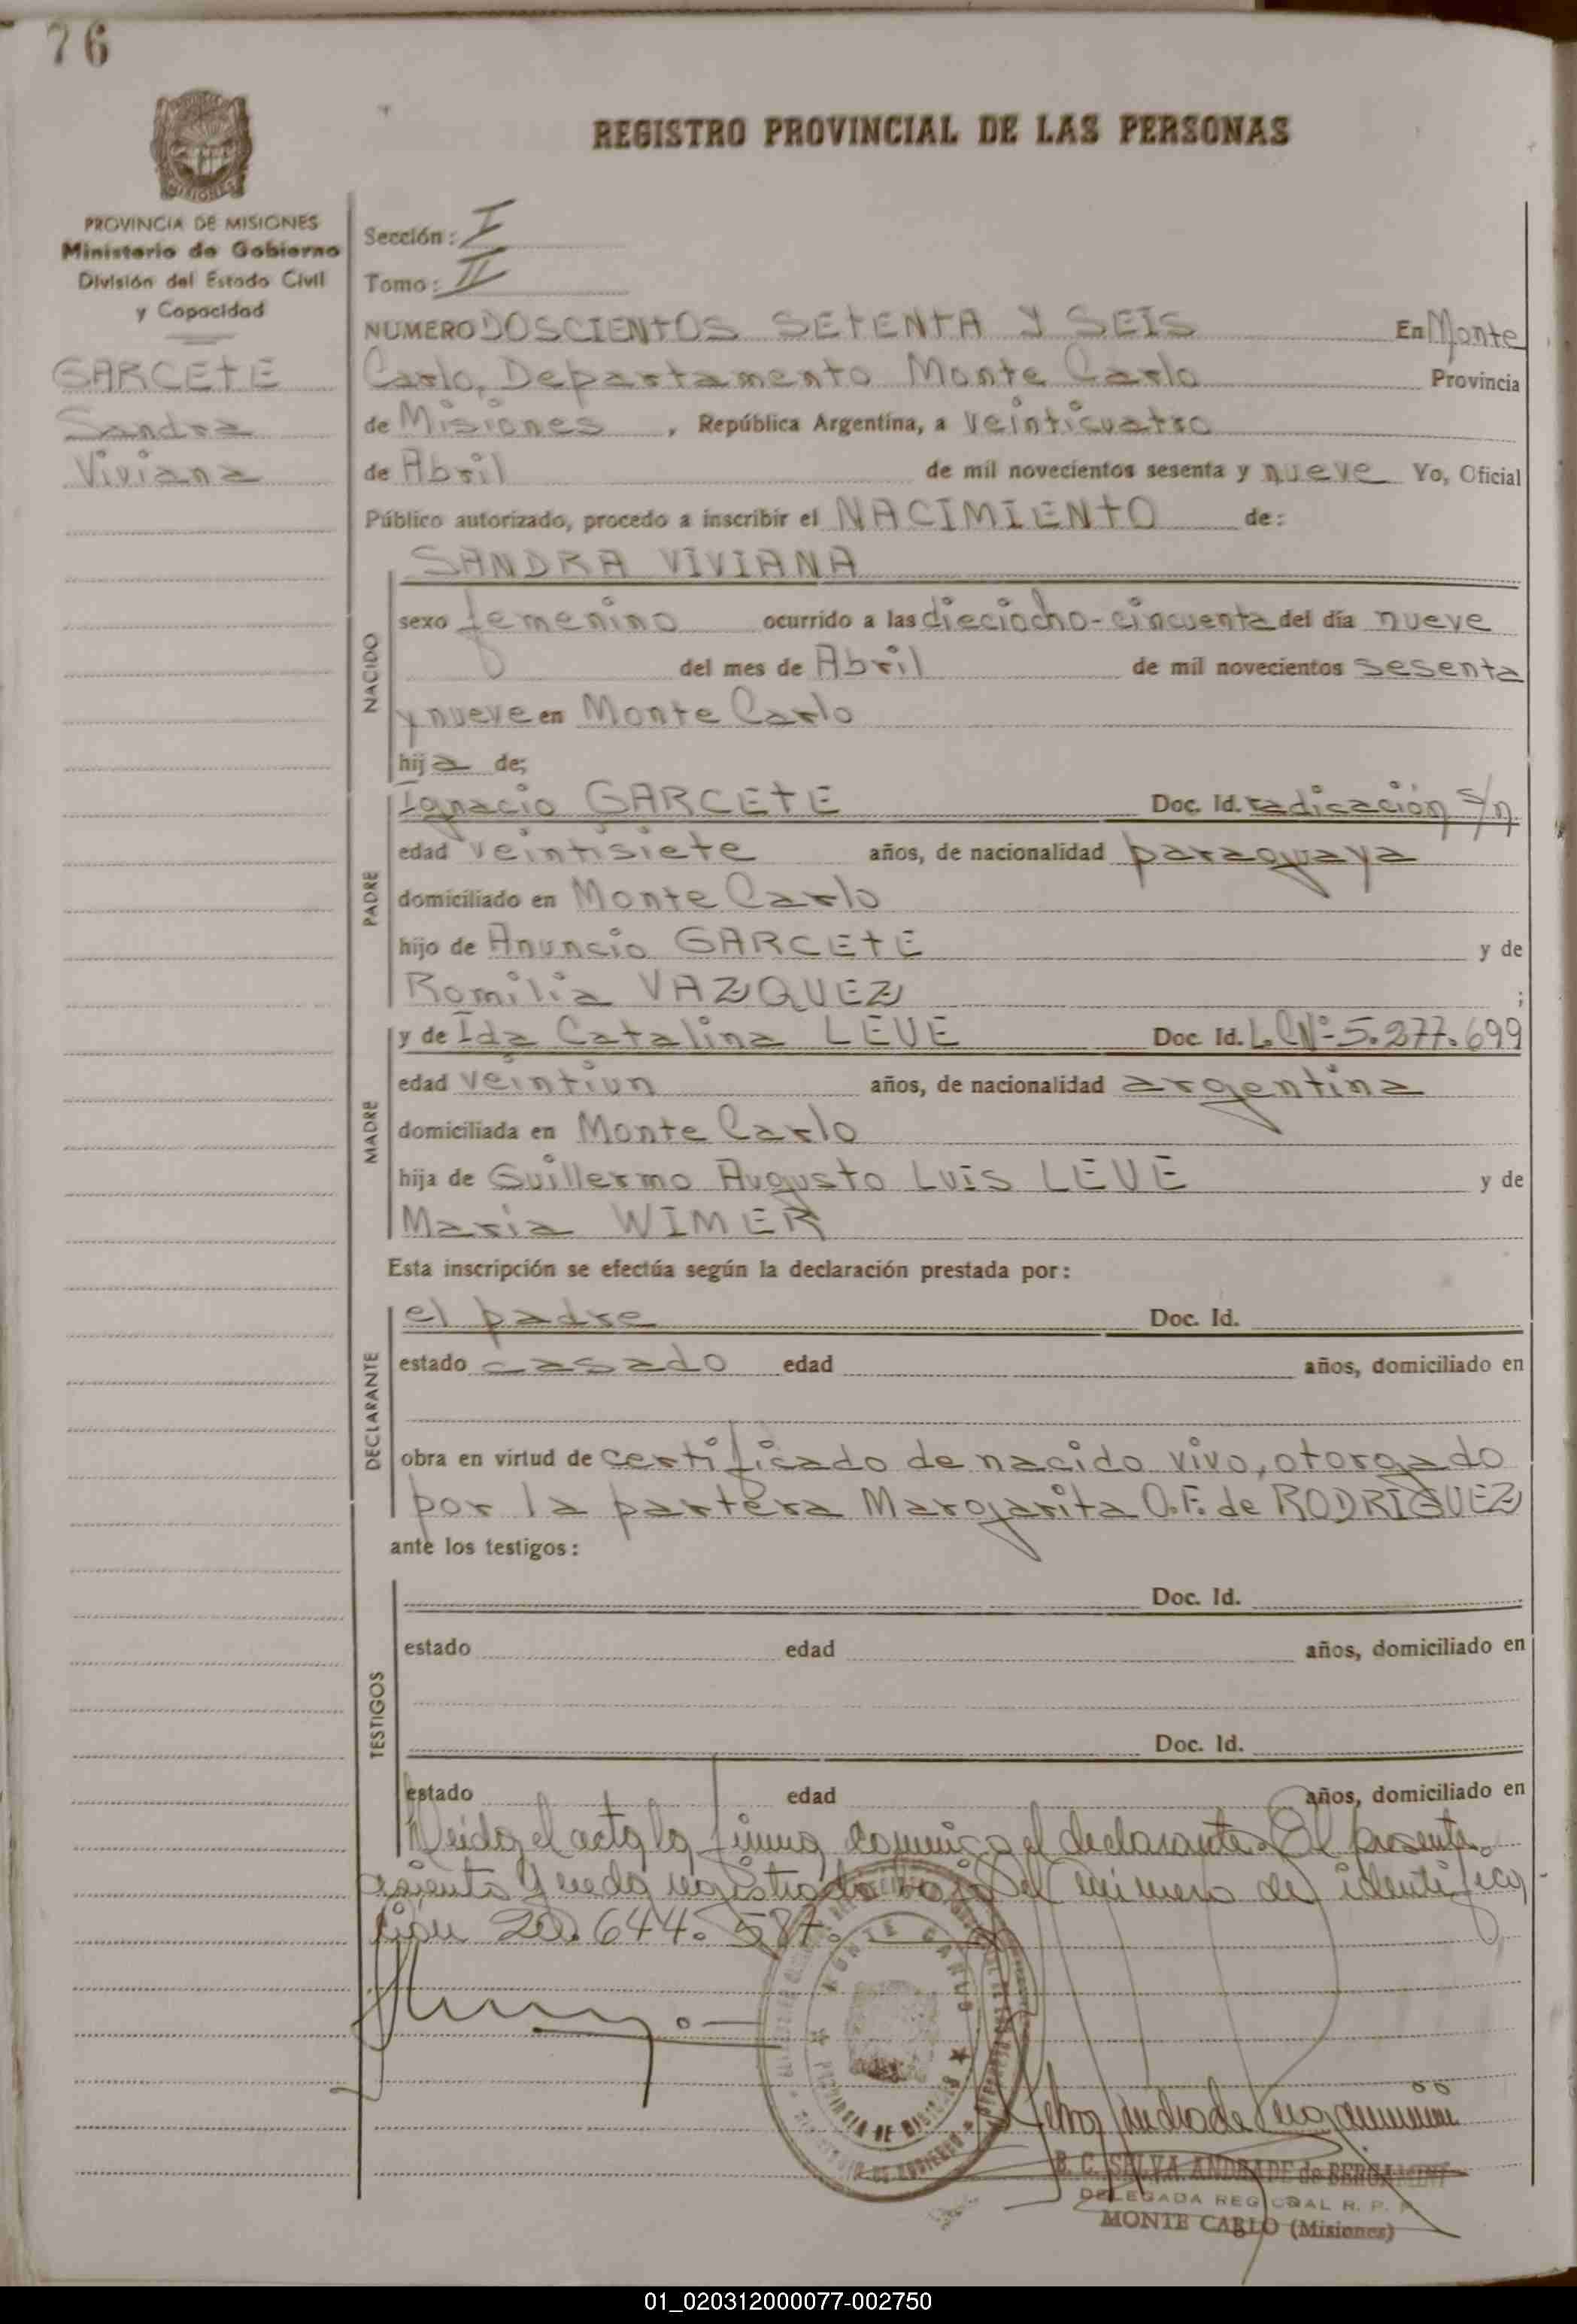 76
REGISTRO PROVINCIAL DE LAS PERSONAS
MISIONES
PROVINCIA DE MISIONES
Ministerio de Gobierno
División del Estado Civil
y Capacidad
GARCETE
Sandra
Viviana
Sección: I
Tomo: II
NUMERO DOSCIENTOS SETENTA Y SEIS En Monte
Carlo, Departamento Monte Carlo Provincia
de Misiones, República Argentina, a veinticuatro
de Abril de mil novecientos sesenta y nueve Yo, Oficial
Público autorizado, procedo a inscribir el NACIMIENTO de:
NACIDO
SANDRA VIVIANA
sexo femenino ocurrido a las dieciocho-cincuenta del día nueve
del mes de Abril de mil novecientos sesenta
y nueve en Monte Carlo
hija de;
PADRE
Ignacio GARCETE Doc. Id. radicación s/n
edad veintisiete años, de nacionalidad paraguaya
domiciliado en Monte Carlo
hijo de Anuncio GARCETE y de
Romilia VAZQUEZ ;
MADRE
y de Ida Catalina LEUE Doc. Id. L.C Nº 5.277.699
edad veintiun años, de nacionalidad argentina
domiciliada en Monte Carlo
hija de Guillermo Augusto Luis LEUE y de
Maria WIMER
Esta inscripción se efectúa según la declaración prestada por:
DECLARANTE
el padre Doc. Id.
estado casado edad años, domiciliado en
obra en virtud de certificado de nacido vivo, otorgado
por la partera Margarita O.F. de RODRIGUEZ
ante los testigos:
TESTIGOS
Doc. Id.
estado edad años, domiciliado en
Doc. Id.
estado edad años, domiciliado en
Leida el acta la firma conmigo el declarante. El presente
asiento queda registrado bajo el número de identifica
ción 20.644.587.
MONTE CARLO
PROVINCIA DE MISIONES
B. C. SELVA ANDRADE de BERGAMINI
DELEGADA REGIONAL R. P. P.
MONTE CARLO (Misiones)
01_020312000077-002750